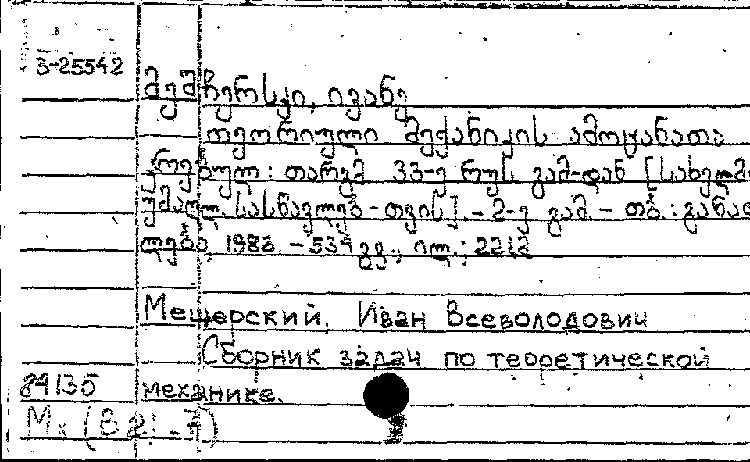 3-25542
მეშჩერსკი, ივანე
თეორიული მექანიკის ამოცანათა
კრებულ: თარგმ. 33-ე რუს. გამ-დან [სახელმ
ქმაღლ. სასწავლებ-თვის]. - 2-ე გამ. - თბ.: განათ
ლება, 1983. - 534 გვ., ილ.; 22
Мещерский, Иван Всеволодович
Сборник задач по теоретической
84135 механике.